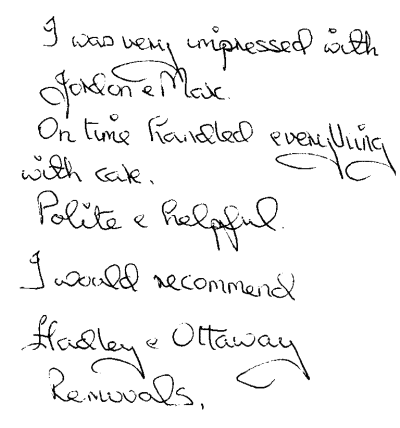 I was very impressed with
Jordon e Max.
On time handled everything
with care.
Polite e helpful.
I would recommend
Hadley e Ottaway
Removals.